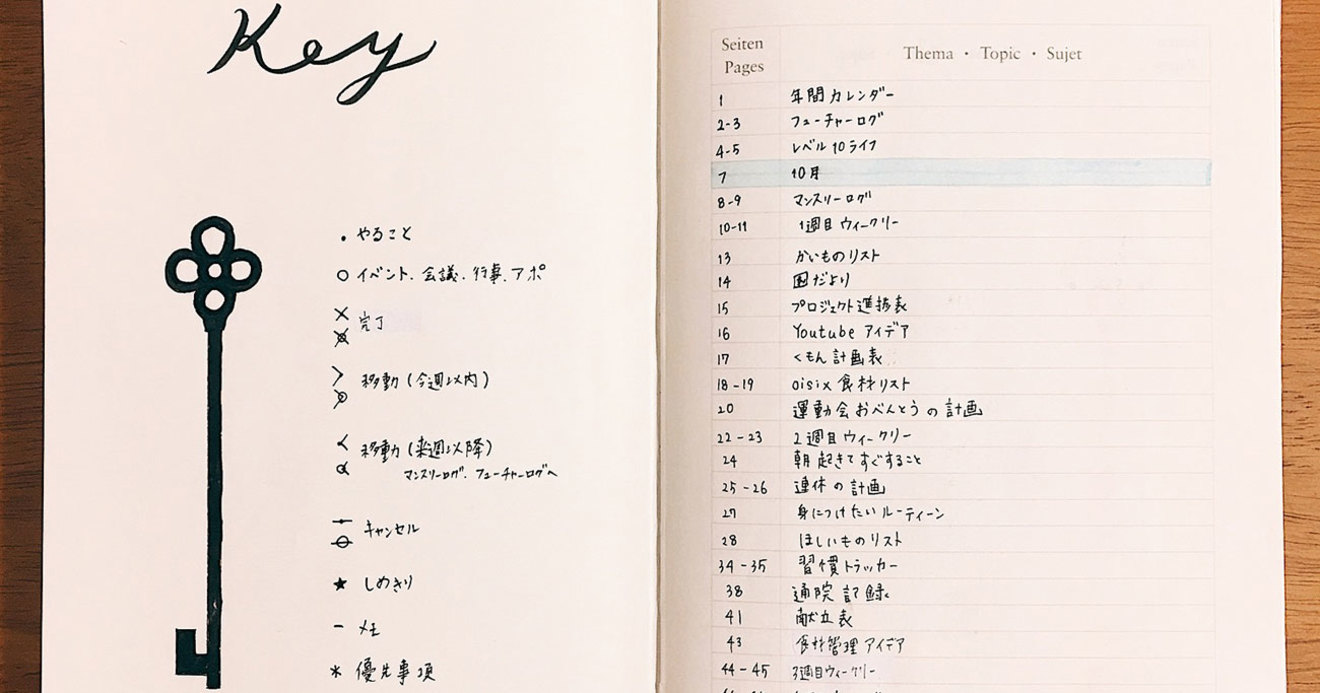 Key
・やること
○イベント、会議、行事、アポ
× 完了
> 移動(今週以内)
< 移動(来週以降)
マンスリーログ、フューチャーログへ
キャンセル
★ しめきり
- メモ
* 優先事項
Seiten Pages Thema・Topic・Sujet
1 年間カレンダー
2-3 フューチャーログ
4-5 レベル10ライフ
7 10月
8-9 マンスリーログ
10-11 1週目ウィークリー
13 かいものリスト
14 園だより
15 プロジェクト進捗表
16 Youtubeアイデア
17 くもん計画表
18-19 oisix食材リスト
20 運動会おべんとうの計画
22-23 2週目ウィークリー
24 朝起きてすぐすること
25-26 連休の計画
27 身につけたいルーティーン
28 ほしいものリスト
34-35 習慣トラッカー
38 通院記録
41 献立表
43 食材管理アイデア
44-45 3週目ウィークリー